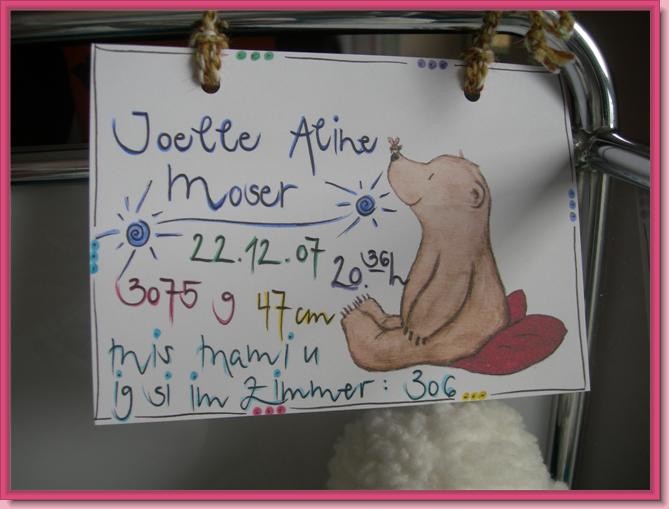 Joelle Aline
Moser
22.12.07 20.36h
3075 g 47 cm
mis mami u
ig si im Zimmer: 306